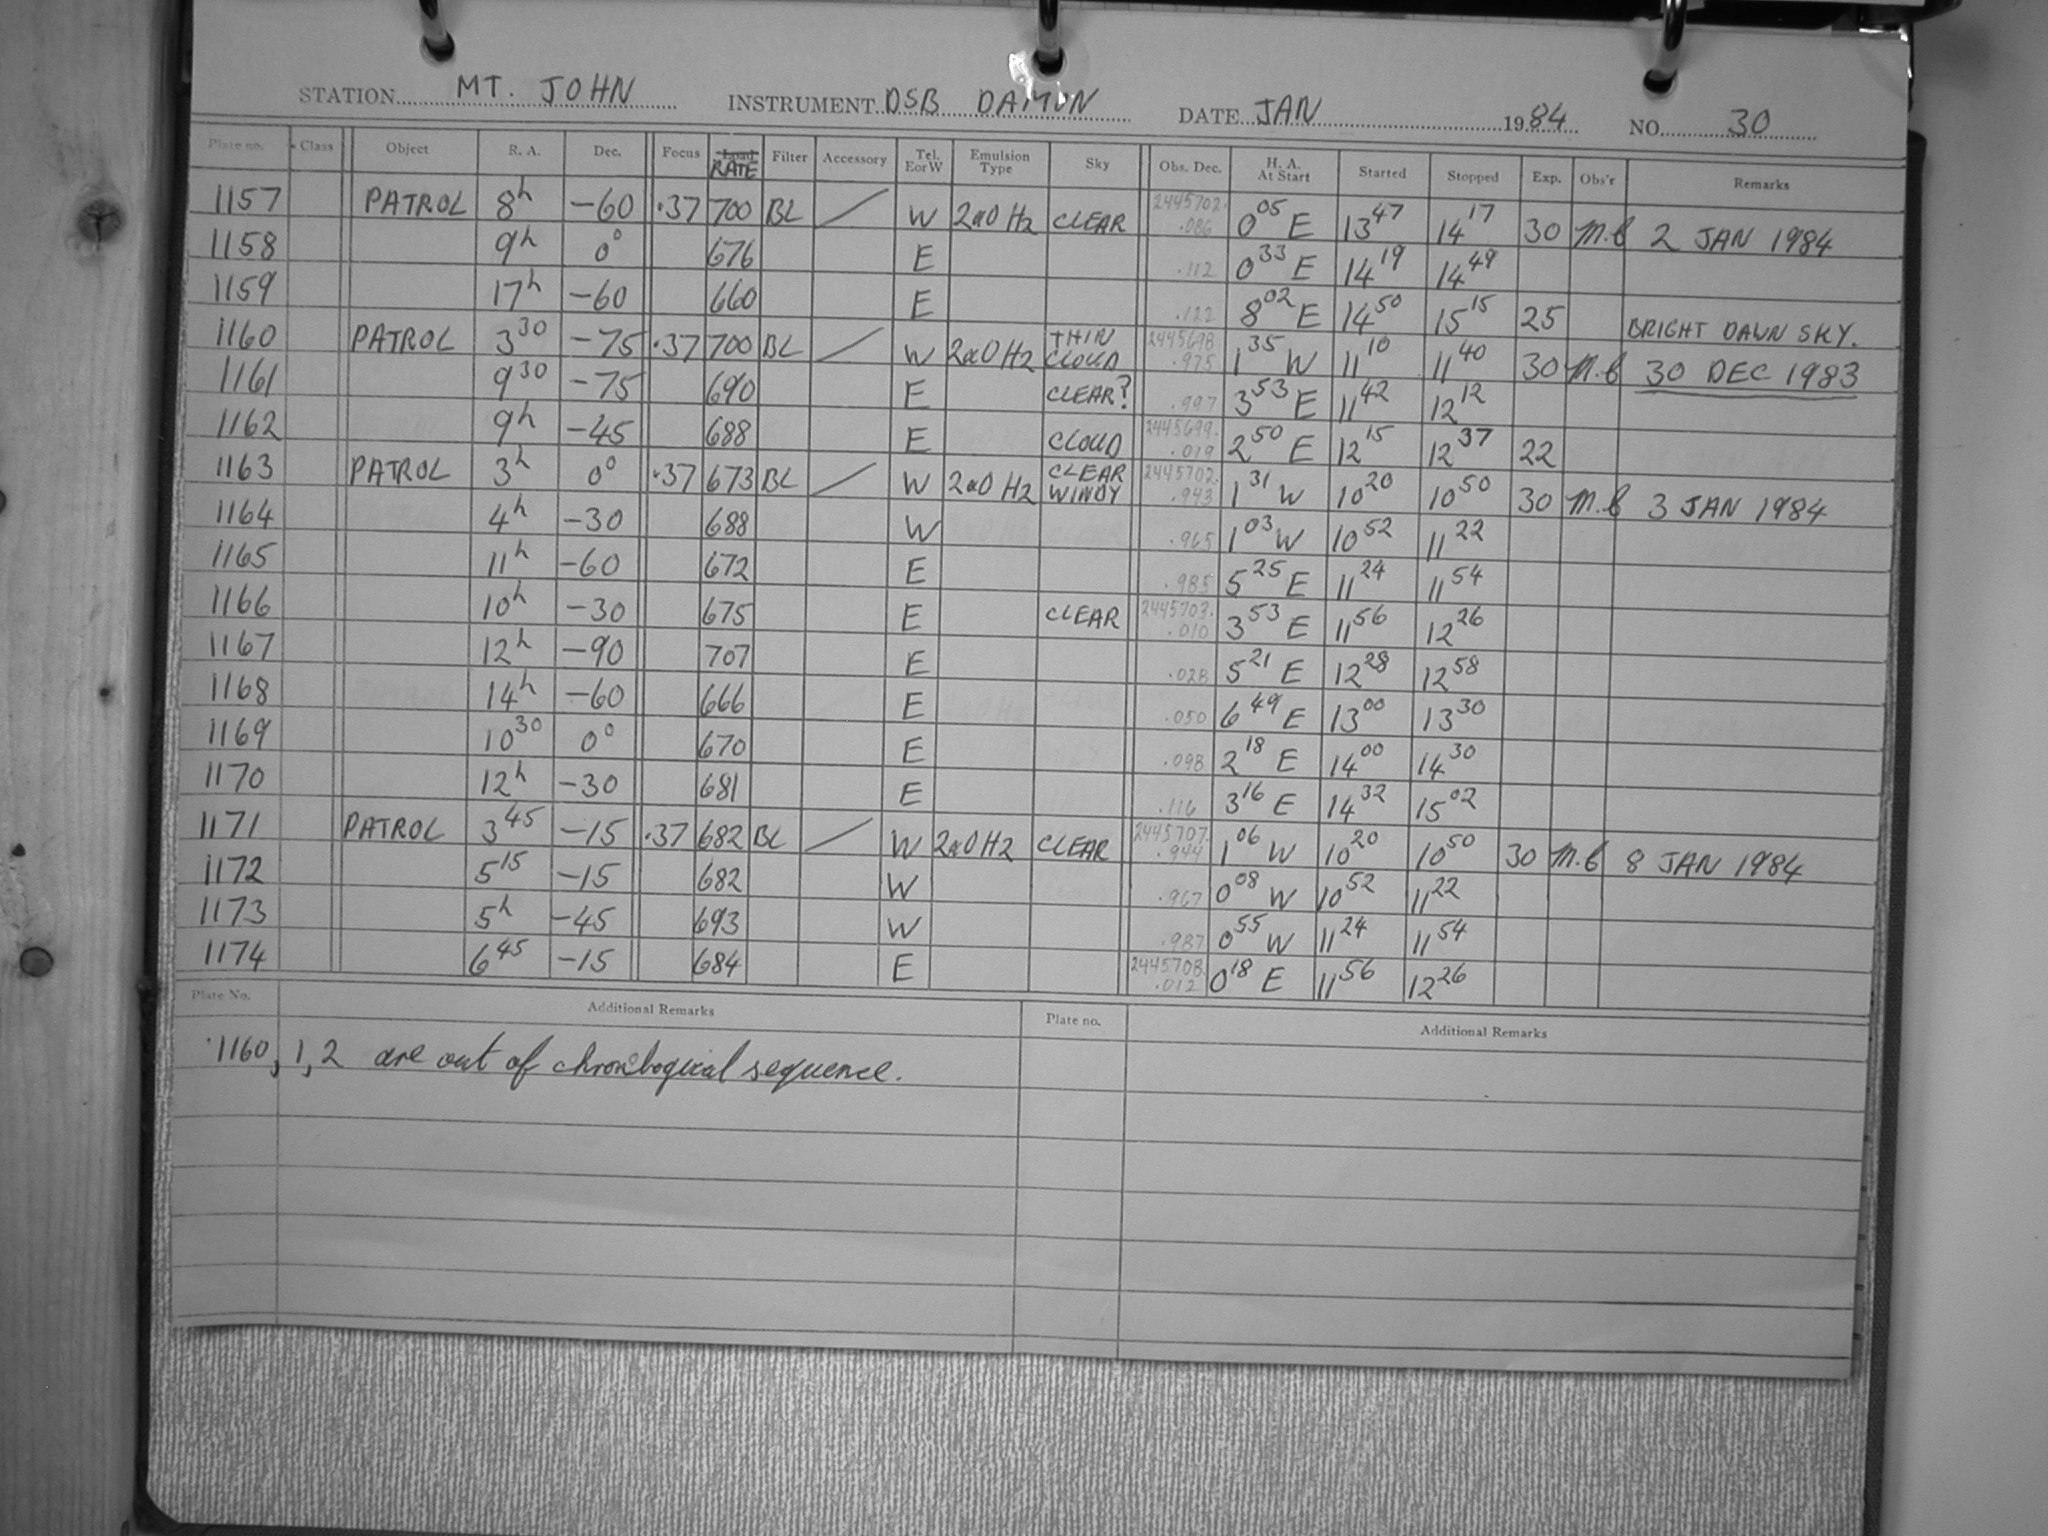 STATION MT. JOHN INSTRUMENT DSB DAMON DATE JAN 1984 NO. 30
Plate no. Class Object R. A. Dec. Focus Load RATE Filter Accessory Tel. E or W Emulsion Type Sky Obs. Dec. H. A. At Start Started Stopped Exp. Obs'r Remarks
1157 PATROL 8h -60 .37 700 BL / W 2aO H2 CLEAR 2445702. .086 0 05 E 13 47 14 17 30 M.B 2 JAN 1984
1158 9h 0° 676 E .112 0 33 E 14 19 14 49
1159 17h -60 660 E .122 8 02 E 14 50 15 15 25 BRIGHT DAWN SKY.
1160 PATROL 3 30 -75 .37 700 BL / W 2aO H2 THIN CLOUD 2445698 .975 1 35 W 11 10 11 40 30 M.B 30 DEC 1983
1161 9 30 -75 690 E CLEAR? .997 3 53 E 11 42 12 12
1162 9h -45 688 E CLOUD 2445699. .019 2 50 E 12 15 12 37 22
1163 PATROL 3h 0° .37 673 BL / W 2aO H2 CLEAR WINDY 2445702. .943 1 31 W 10 20 10 50 30 M.B 3 JAN 1984
1164 4h -30 688 W .965 1 03 W 10 52 11 22
1165 11h -60 672 E .985 5 25 E 11 24 11 54
1166 10h -30 675 E CLEAR 2445703. .010 3 53 E 11 56 12 26
1167 12h -90 707 E .028 5 21 E 12 28 12 58
1168 14h -60 666 E .050 6 49 E 13 00 13 30
1169 10 30 0° 670 E .098 2 18 E 14 00 14 30
1170 12h -30 681 E .116 3 16 E 14 32 15 02
1171 PATROL 3 45 -15 .37 682 BL / W 2aO H2 CLEAR 2445707. .944 1 06 W 10 20 10 50 30 M.B 8 JAN 1984
1172 5 15 -15 682 W .967 0 08 W 10 52 11 22
1173 5h -45 693 W .987 0 55 W 11 24 11 54
1174 6 45 -15 684 E 2445708. .012 0 18 E 11 56 12 26
Plate No. Additional Remarks Plate no. Additional Remarks
1160, 1, 2 are out of chronological sequence.